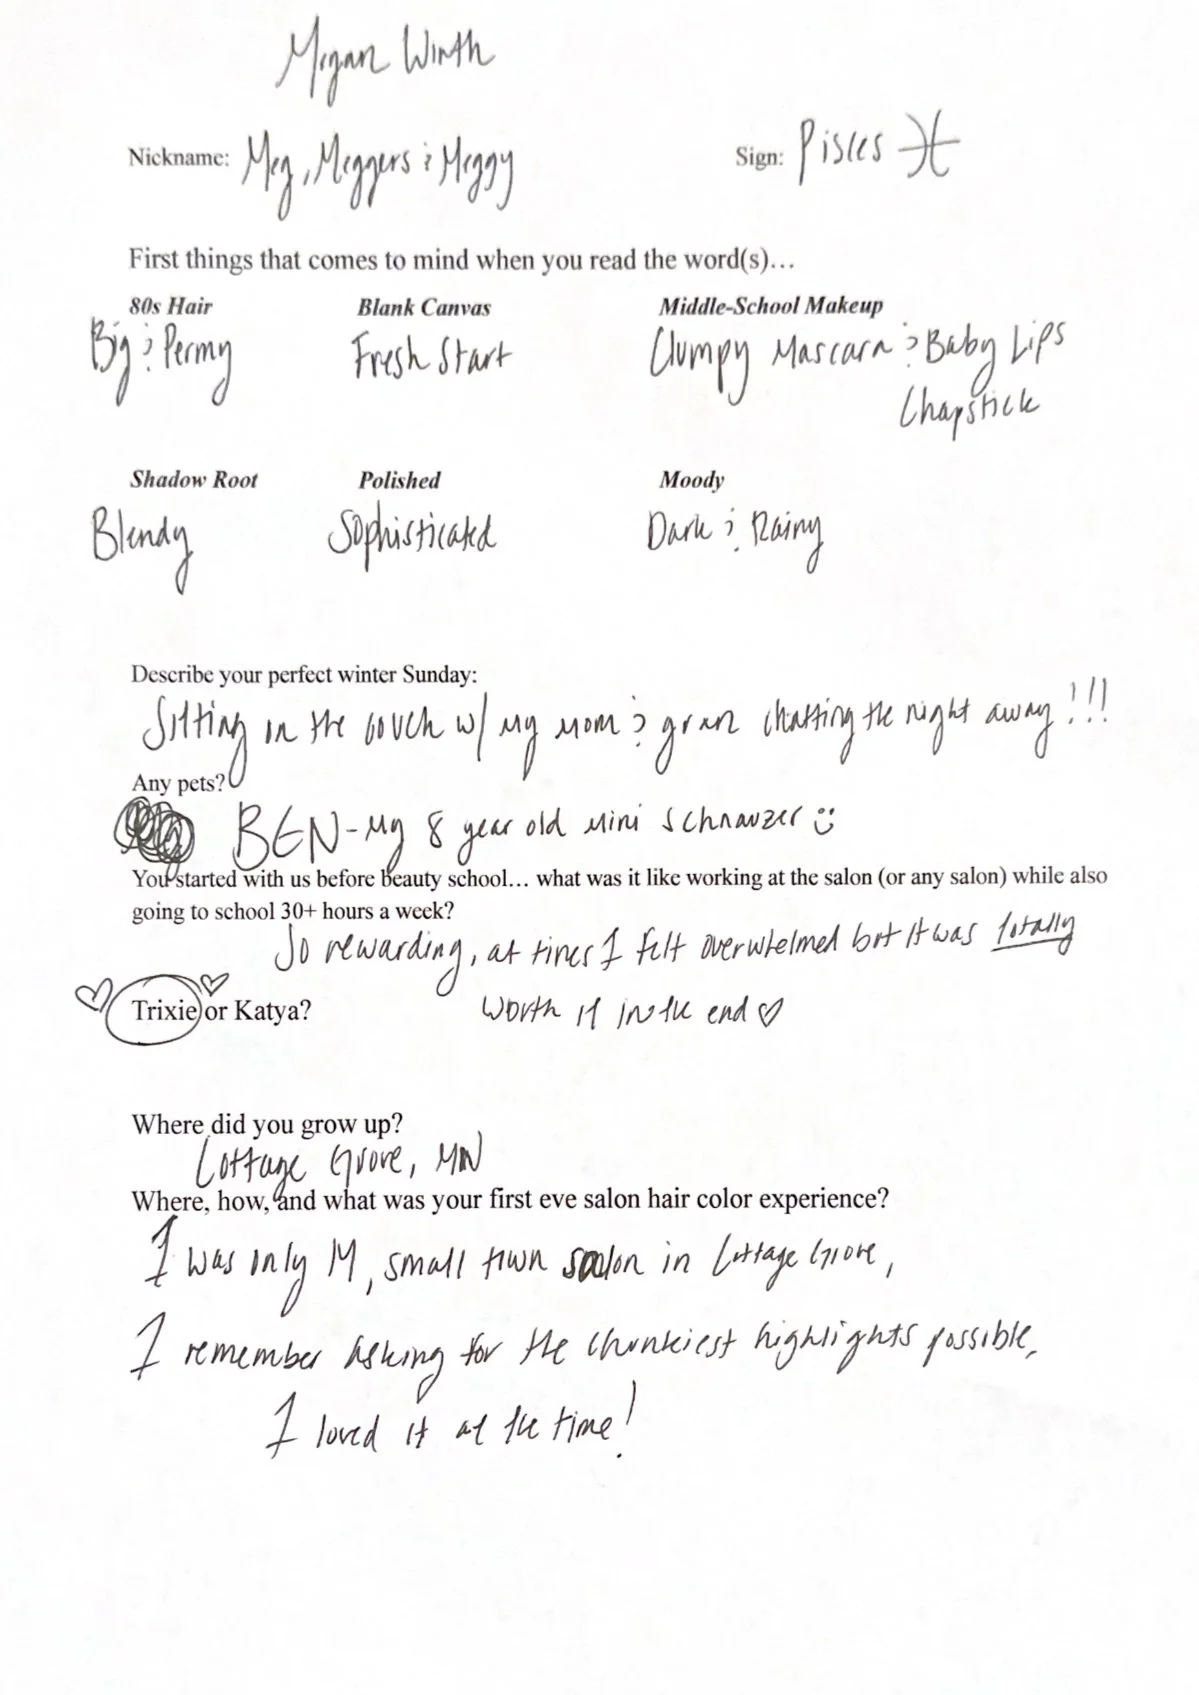 Megan Wirth
Nickname: Meg, Meggers & Meggy
Sign: Pisces ♓
First things that comes to mind when you read the word(s)...
80s Hair Blank Canvas Middle-School Makeup
Big & Permy Fresh Start Clumpy Mascara & Baby Lips
Chapstick
Shadow Root Polished Moody
Blendy Sophisticated Dark & Rainy
Describe your perfect winter Sunday:
Sitting in the couch w/ my mom & gran chatting the night away!!!
Any pets?
BEN - My 8 year old mini schnauzer
You started with us before beauty school... what was it like working at the salon (or any salon) while also
going to school 30+ hours a week?
So rewarding, at times I felt overwhelmed but it was totally
worth it in the end ♡
Trixie or Katya?
Where did you grow up?
Cottage Grove, MN
Where, how, and what was your first eve salon hair color experience?
I was only 14, small town salon in Cottage Grove,
I remember asking for the chunkiest highlights possible,
I loved it at the time!